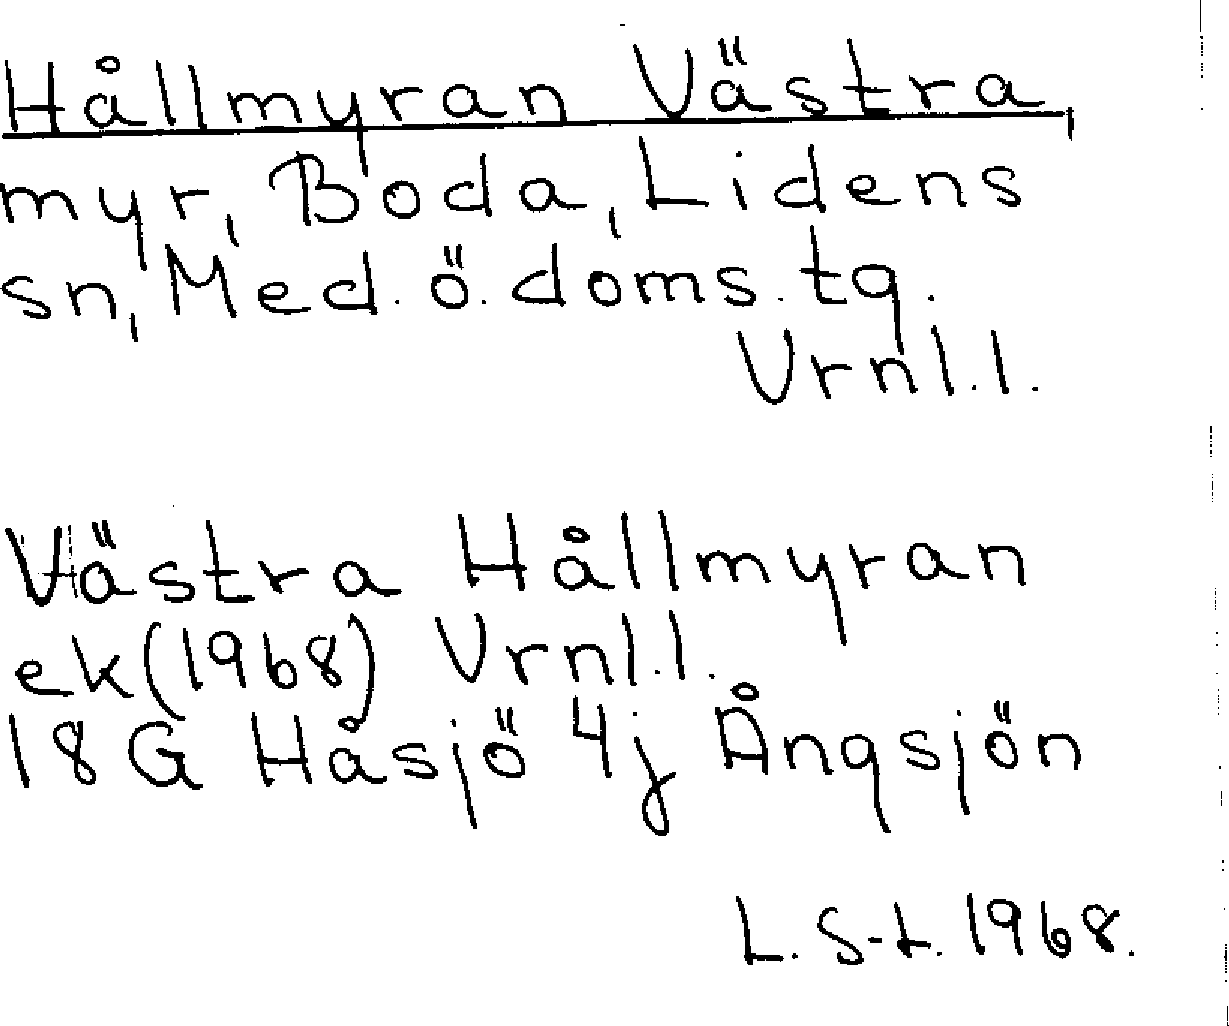 Hållmyran Västra
myr, Boda, Lidens
sn, Med. ö. doms. tg.
Vrnl.l.
Västra Hållmyran
ek(1968) Vrnl.l.
18G Håsjö 4j Ångsjön
L. S-t. 1968.